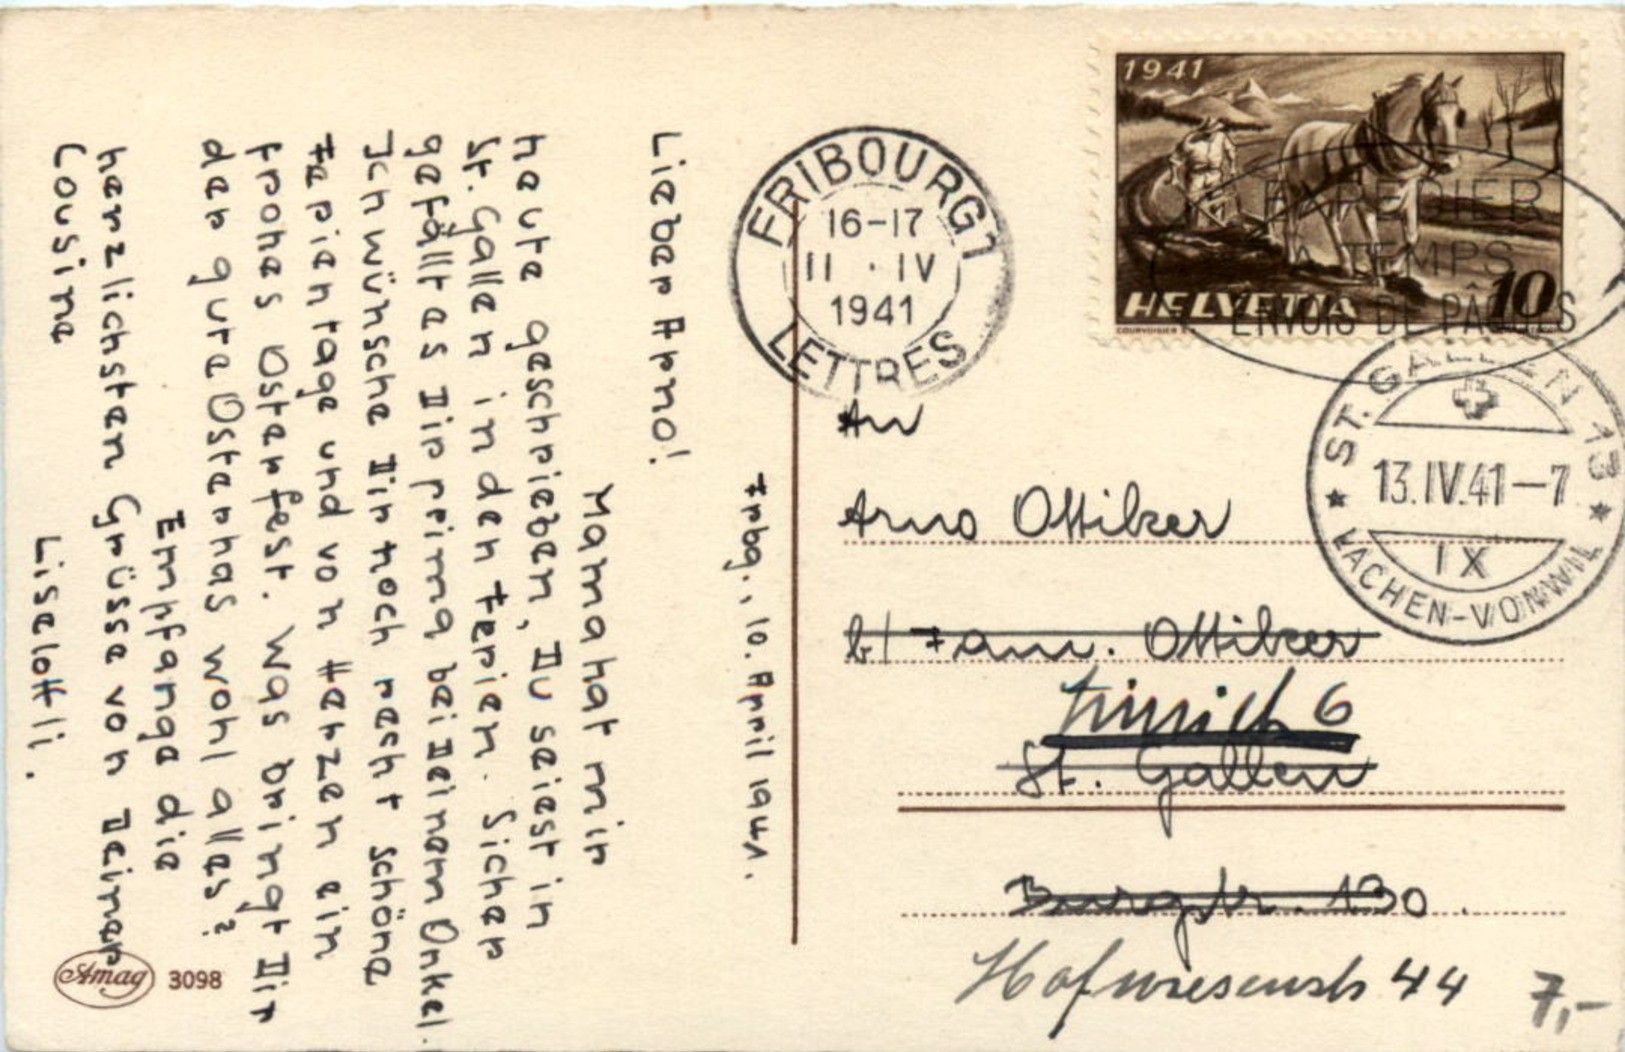 Frbg., 10. April 1941.
Lieber Arno!
Mama hat mir
heute geschrieben, Du seiest in
St. Gallen in den Ferien. Sicher
gefällt es Dir prima bei Deinem Onkel.
Ich wünsche Dir noch recht schöne
Ferientage und von Herzen ein
frohes Osterfest. Was bringt Dir
der gute Osterhas wohl alles?
Empfange die
herzlichsten Grüsse von Deiner
Cousine
Liselotti.
Amag 3098
FRIBOURG 1
16-17
11 · IV
1941
LETTRES
1941
HELVETIA 10
COURVOISIER
A TEMPS
ENVOIS DE PÂQUES
ST. GALLEN 13
13.IV.41-7
IX
LACHEN-VONWIL
An
Arno Ottiker
b/ Fam. Ottiker
Zürich 6
St. Gallen
Burgstr. 130
Hofwiesenstr 44
7,-